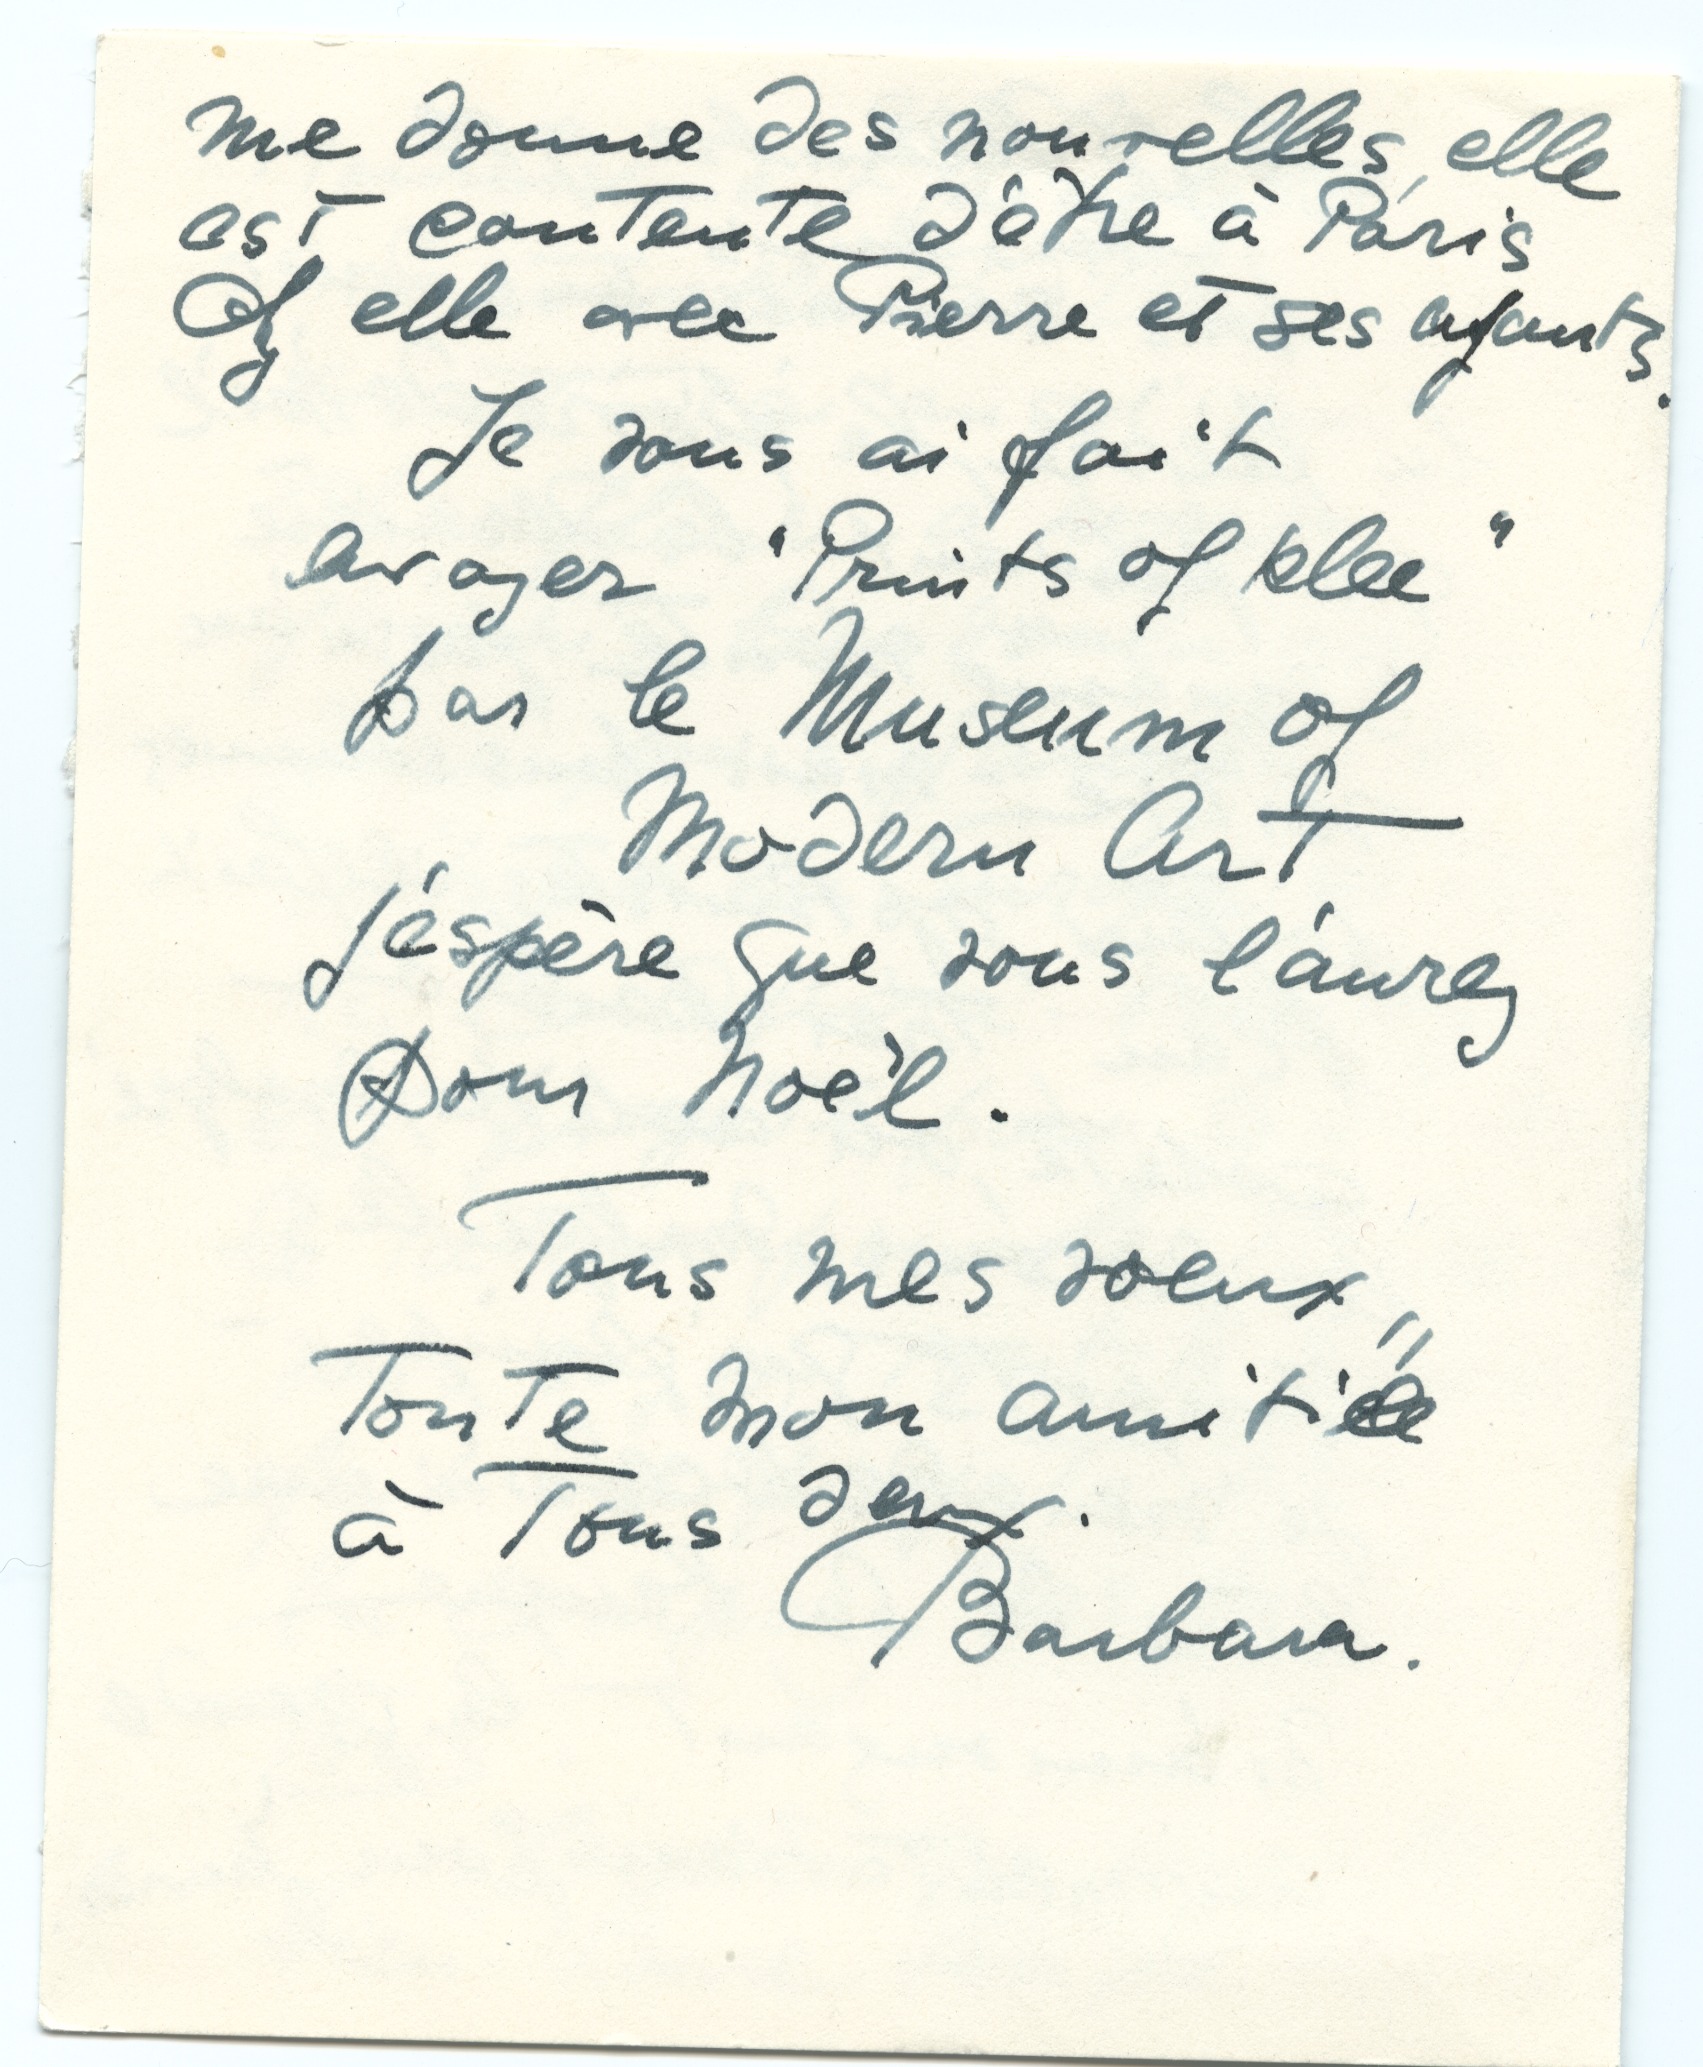 me donne des nouvelles, elle
est contente d'être à Paris
chez elle avec Pierre et ses enfants.
Je vous ai fait
envoyer "Prints of Klee"
par le Museum of
Modern Art
j'éspère que vous l'aurez
pour Noël.
Tous mes voeux,
Toute mon amitié
à Tous deux.
Barbara.